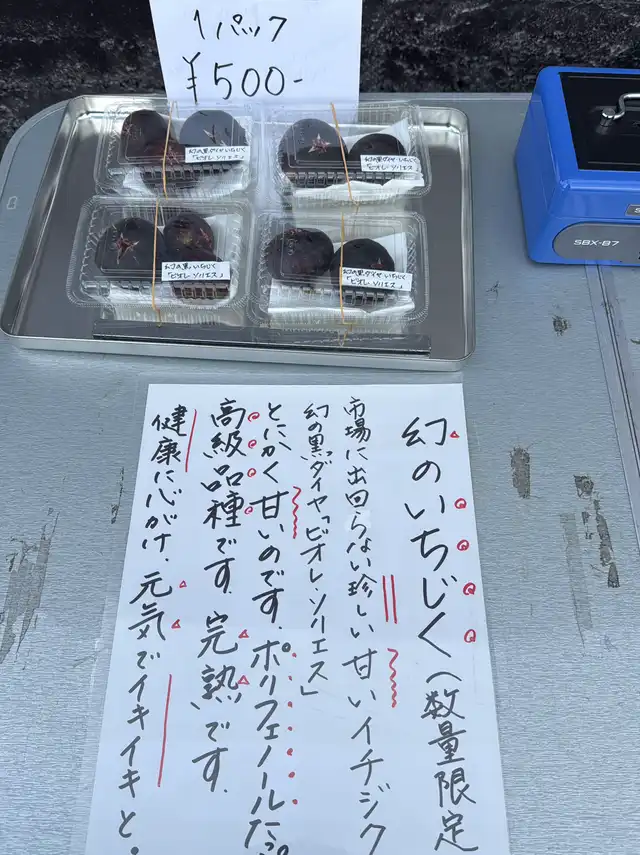 1パック
¥500-
幻の黒ダイヤいちじく
「ビオレ・ソリエス」
幻の黒ダイヤいちじく
「ビオレ・ソリエス」
幻の黒いちじく
「ビオレ・ソリエス」
幻の黒ダイヤいちじく
「ビオレ・ソリエス」
SBX-B7
幻のいちじく(数量限定
市場に出回らない珍しい甘いイチジク
幻の黒ダイヤ「ビオレ・ソリエス」
とにかく甘いのです。ポリフェノールたっぷ
高級品種です。完熟です。
健康に心がけ、元気でイキイキと。